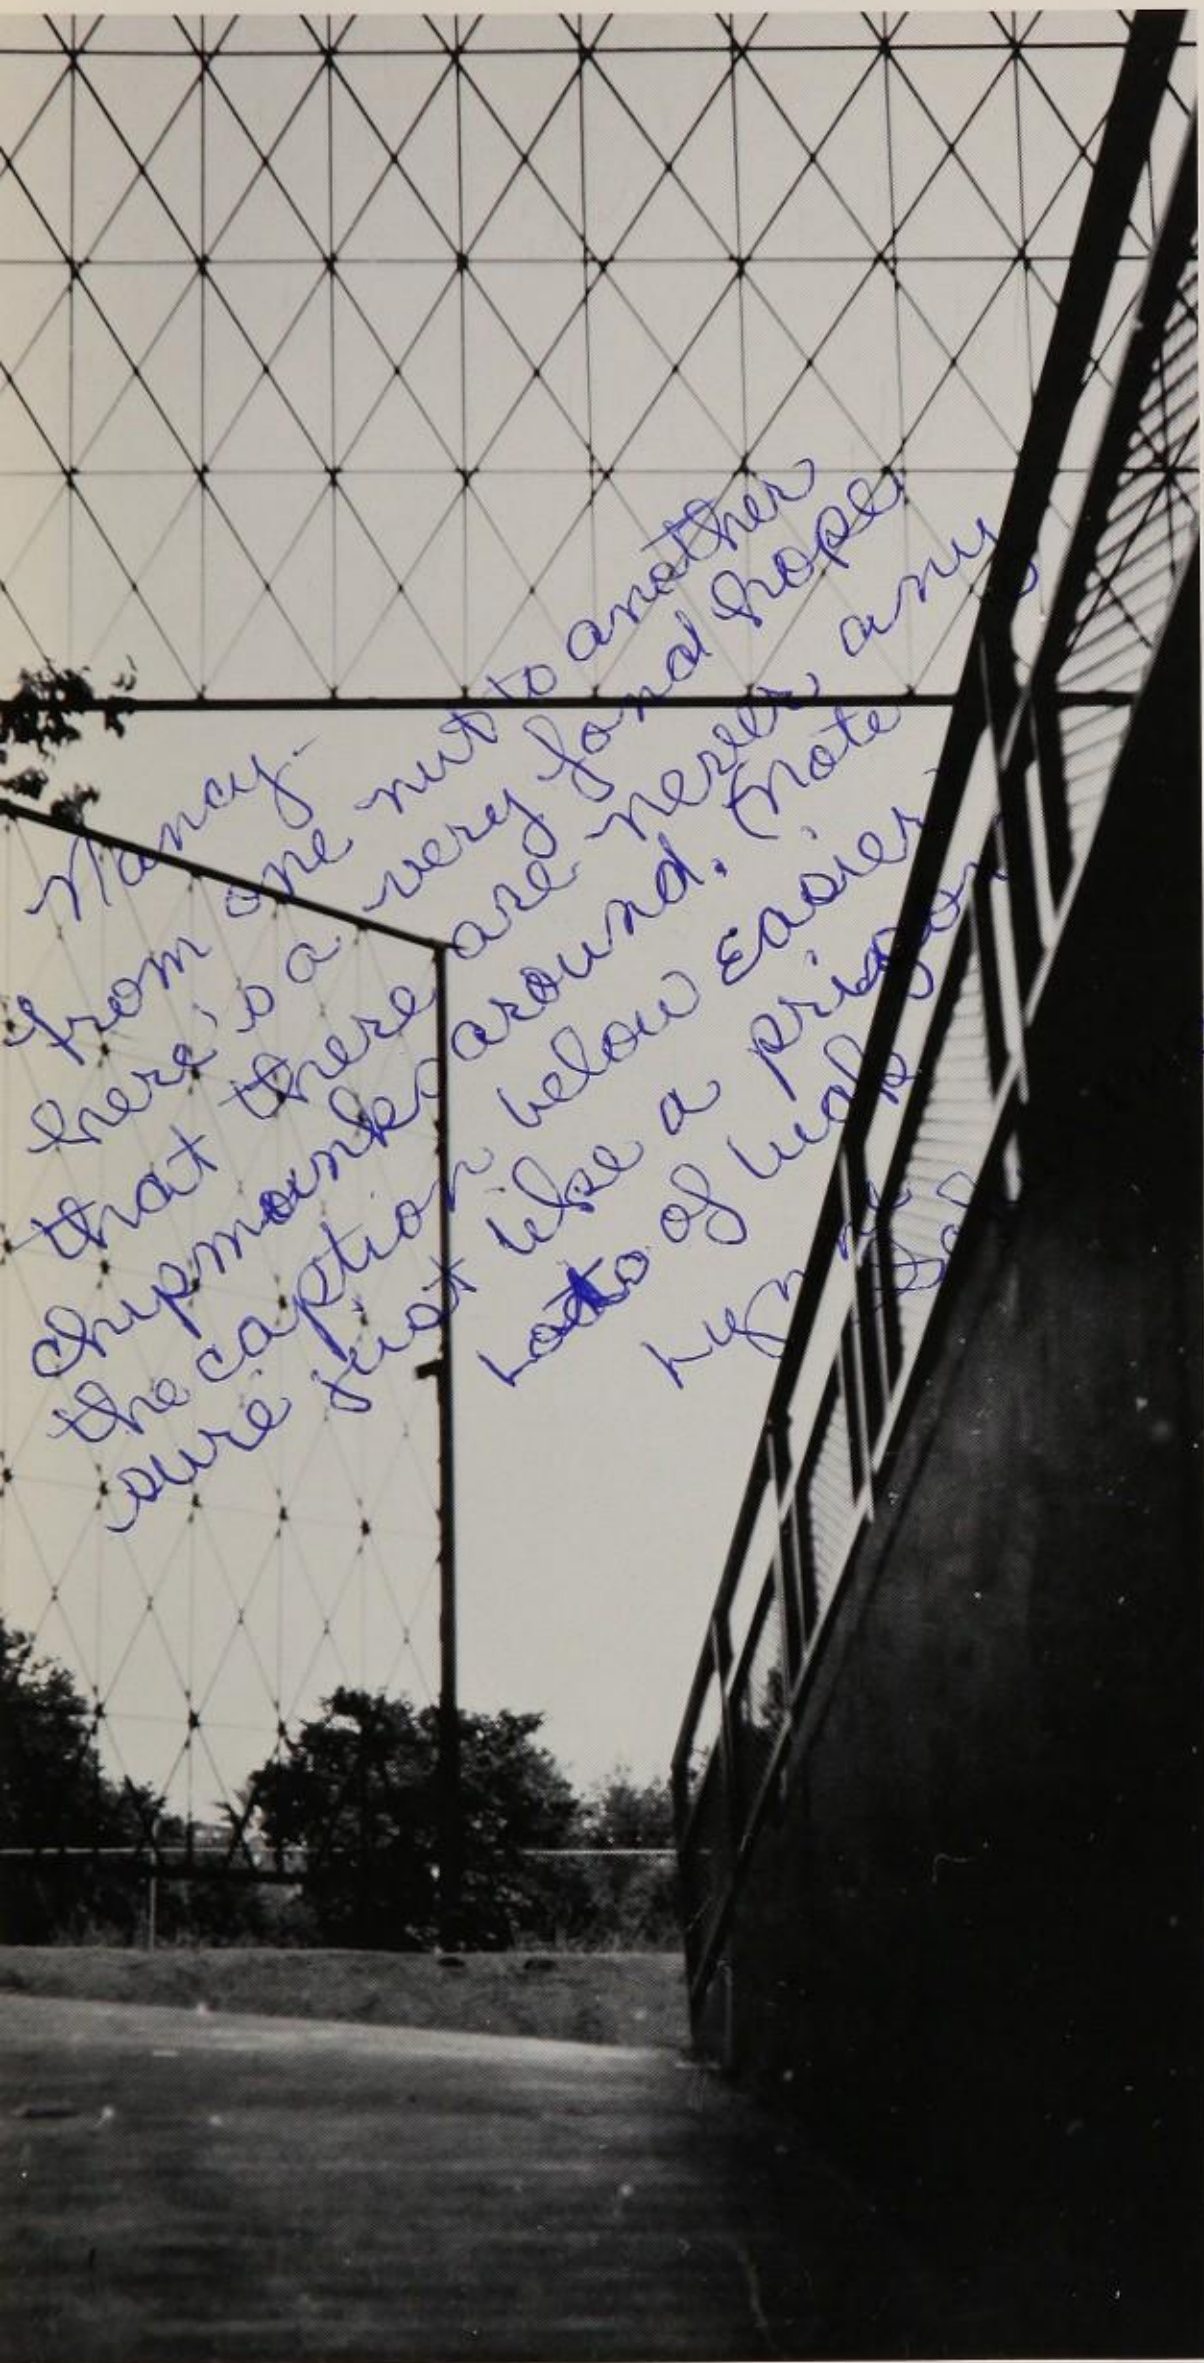 Nancy-
From one nut to another
here's a very fond hope
that there are never any
chipmunks around. (Note
the caption below Easier
sure just like a prison
Lots of luck
Lynne